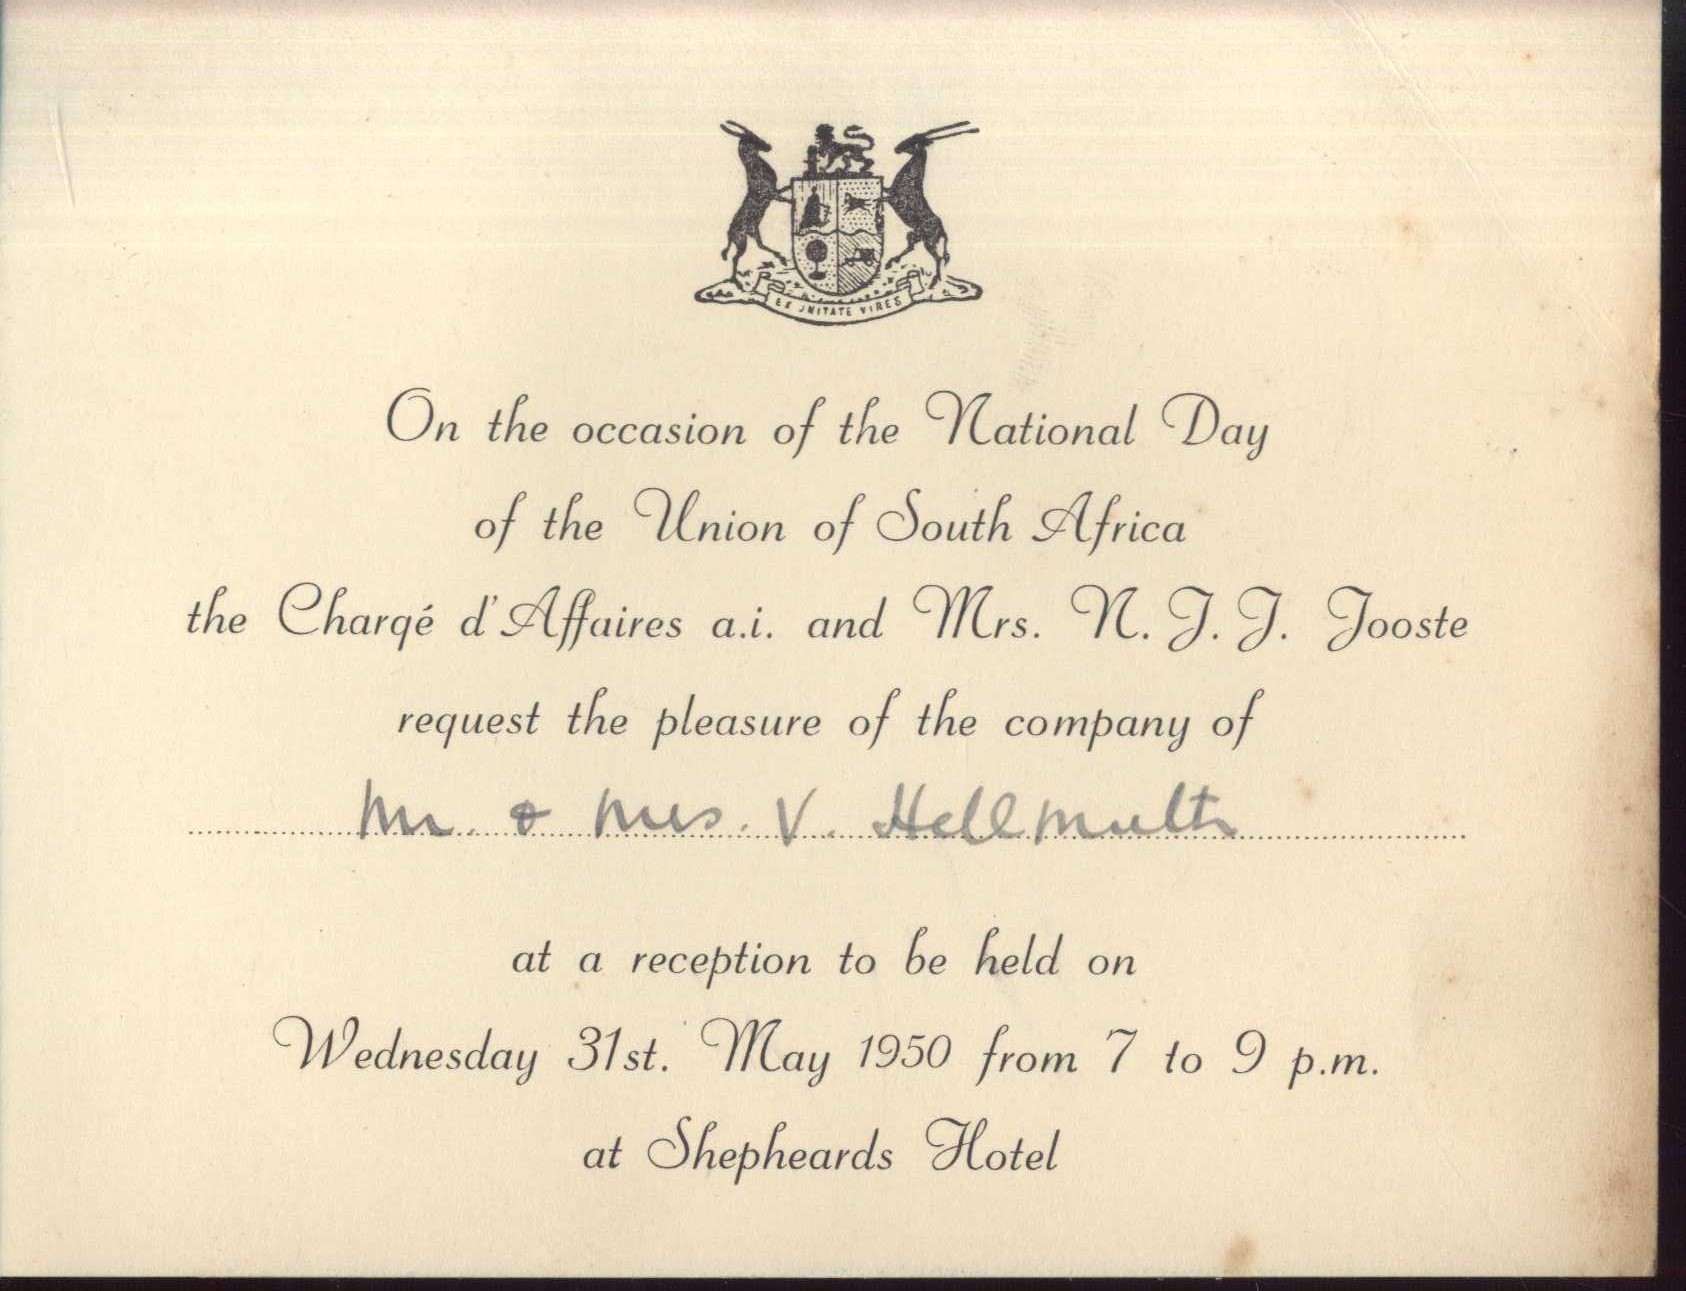 EX UNITATE VIRES
On the occasion of the National Day
of the Union of South Africa
the Chargé d'Affaires a.i. and Mrs. N. J. J. Jooste
request the pleasure of the company of
Mr. & Mrs. V. Hellmuth
at a reception to be held on
Wednesday 31st. May 1950 from 7 to 9 p.m.
at Shepheards Hotel